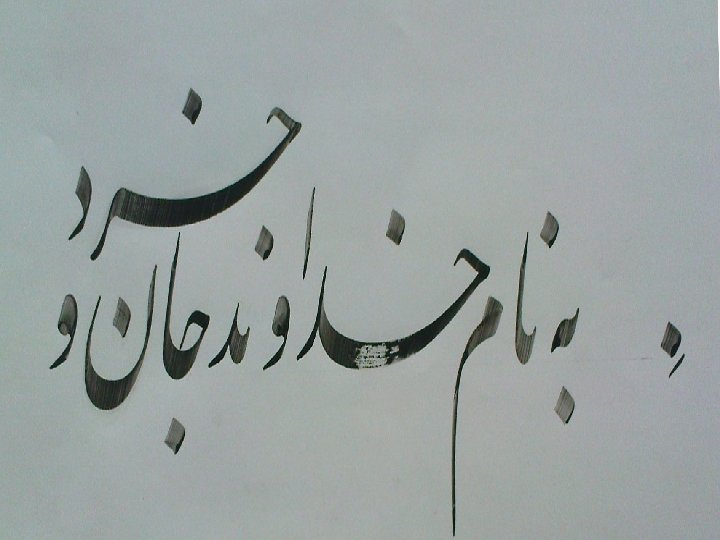 به نام خداوند جان و خرد